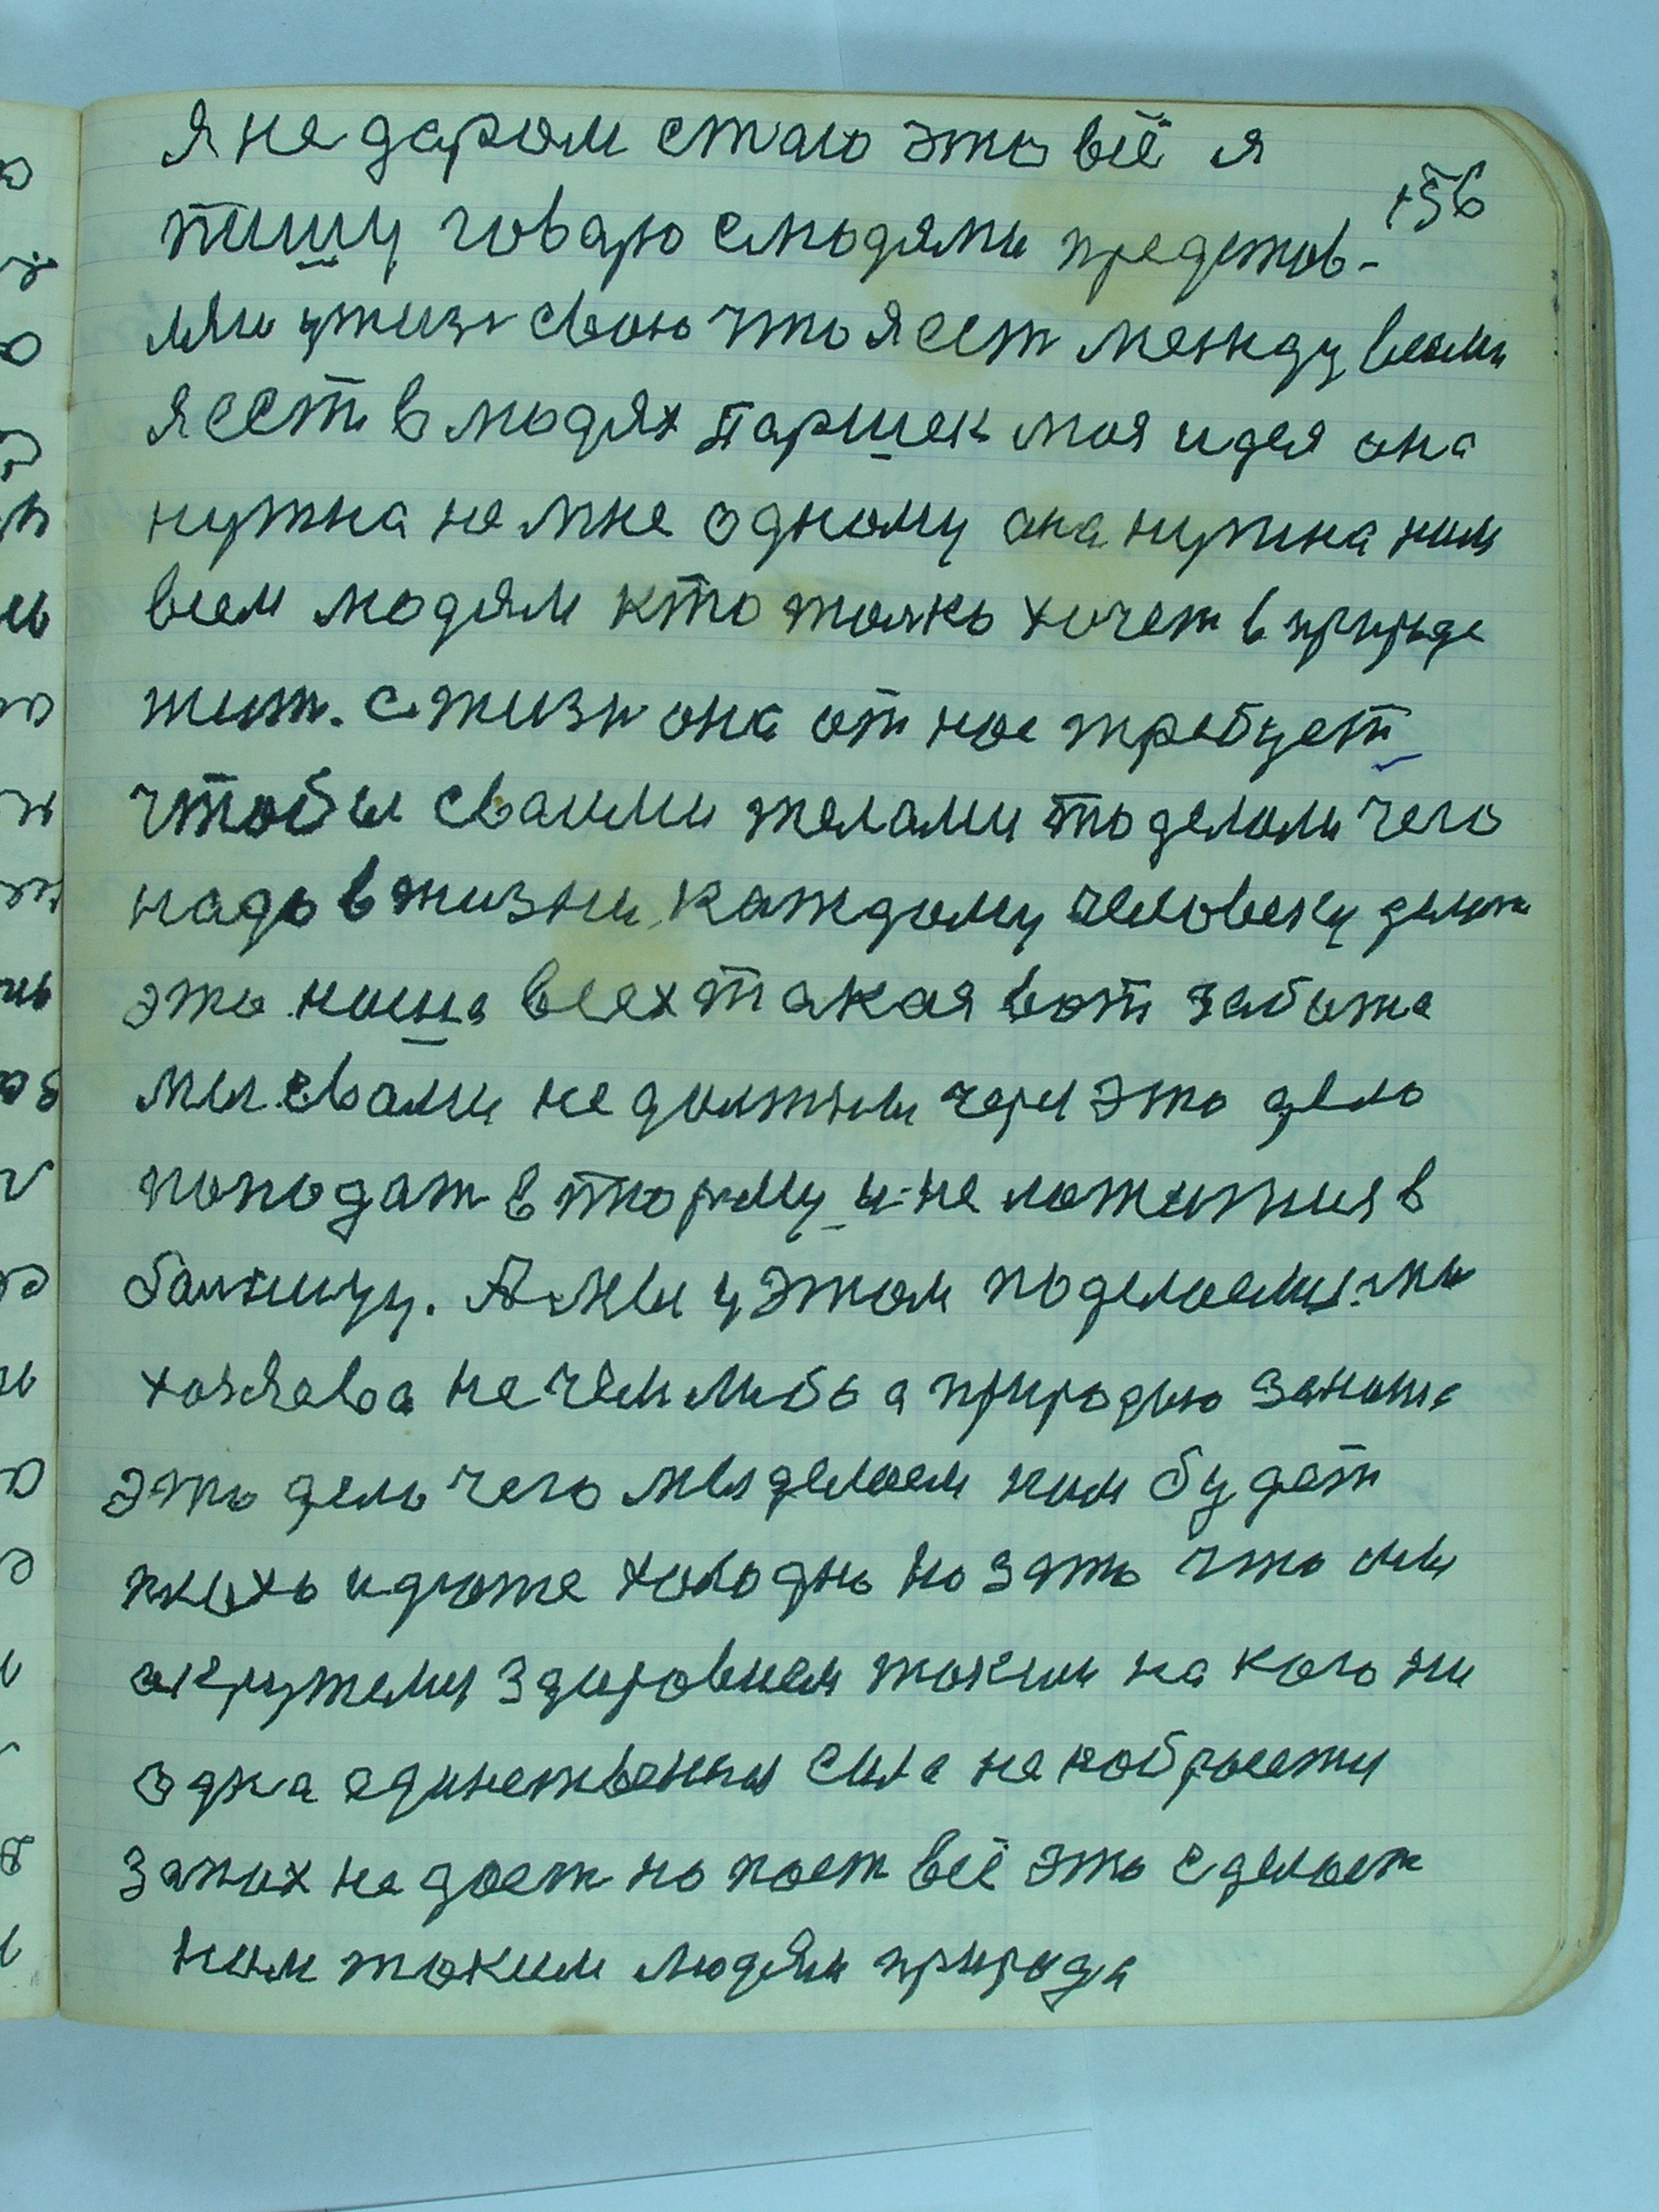 я не даром стаю это всё я
156
пишу говарю слюдями представ-
ляю ужизн свою что я ест между всеми
я ест в людях паршек моя идея она
нужна не мне одному она нужна нам
всем людям кто толко хочет в природе
жит. с жизн она от нас требует
чтобы сваими телами то делали чего
надо в жизни каждому человеку
это наша всех такая вот забота
мы свами не должни через это дело
поподат в тюрму и не ложитися в
балницу. А мы у этом поделаемся
хазяева не чем либо а природаю занаше
это дело чего мы делаем нам будет
плохо идюже холодно но зато что мы
окружемы здоровием таким на кого ни
одна единственная сила не наброситя
запах не даст но паст всё это сделает
нам таким людям природа